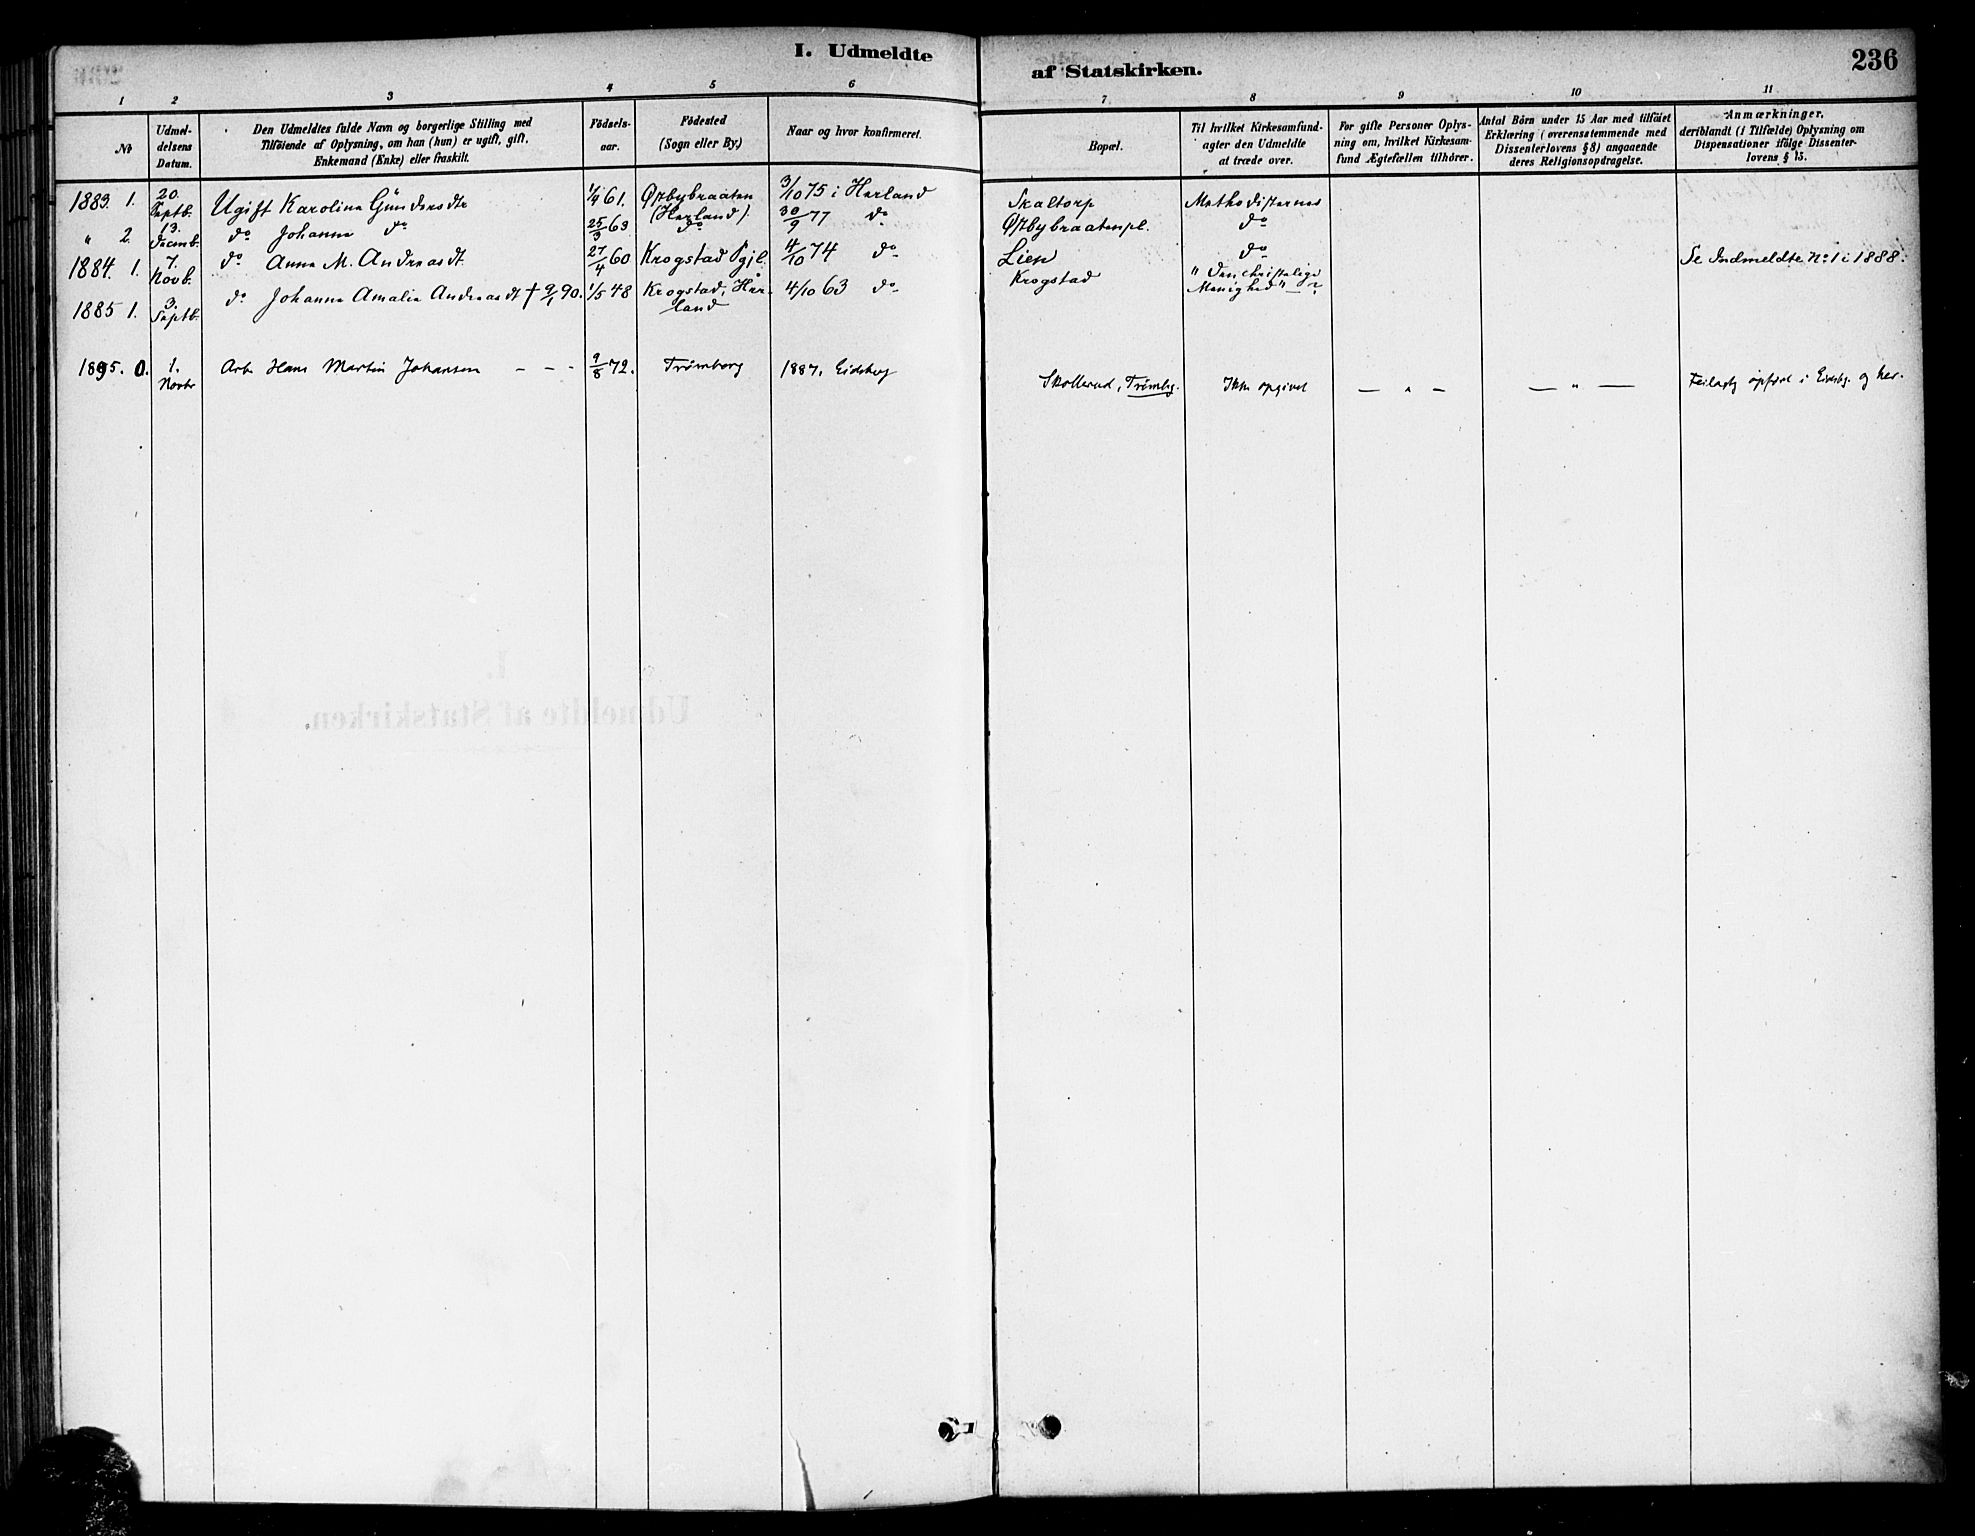 I. Udmeldte
af Statskirken.
236
1 2 3 4 5 6 7 8 9 10 11
№
Udmel-
delsens
Datum.
Den Udmeldtes fulde Navn og borgerlige Stilling med
Tilføiende af Oplysning, om han (hun) er ugift, gift,
Enkemand (Enke) eller fraskilt.
Fødsels-
aar.
Fødested
(Sogn eller By.)
Naar og hvor konfirmeret.
Bopæl.
Til hvilket Kirkesamfund-
agter den Udmeldte
at træde over.
For gifte Personer Oplys-
ning om, hvilket Kirkesam-
fund Ægtefællen tilhører.
Antal Börn under 15 Aar med tilföiet
Erklæring (overensstemmende med
Dissenterlovens § 8) angaaende
deres Religionsopdragelse.
Anmærkninger,
deriblandt (i Tilfælde) Oplysning om
Dispensationer ifölge Dissenter-
lovens § 15.
1883. 1. 20. Septb. Ugift Karoline Gundersdtr 1/4 61. Østbybraaten (Herland) 3/10 75 i Herland Skaltorp Methodisternes
" 2. 13. Decmb. do Johanne do 25/3 63 do 30/9 77 do Østbybraatenpl. do
1884. 1. 7. Novb. do Anne M. Andreasdt. 27/4 60 Krogstad Pgjl. 4/10 74 do Lien do Se Indmeldte No 1 i 1888.
1885 1. 3. Septb. do Johanne Amalie Andreasdt † 9/1 90. 1/5 48 Krogstad, Her-
land 4/10 63 do Krogstad "Den christelige
Menighed"
1895. 0. 1. Novbr Arb. Hans Martin Johansen - - - 9/8 72. Trømborg 1887, Eidsberg Skollerud, Trømbg. Ikke opgivet — " — — " — Feilagtig opført i Eidsbg. og her.